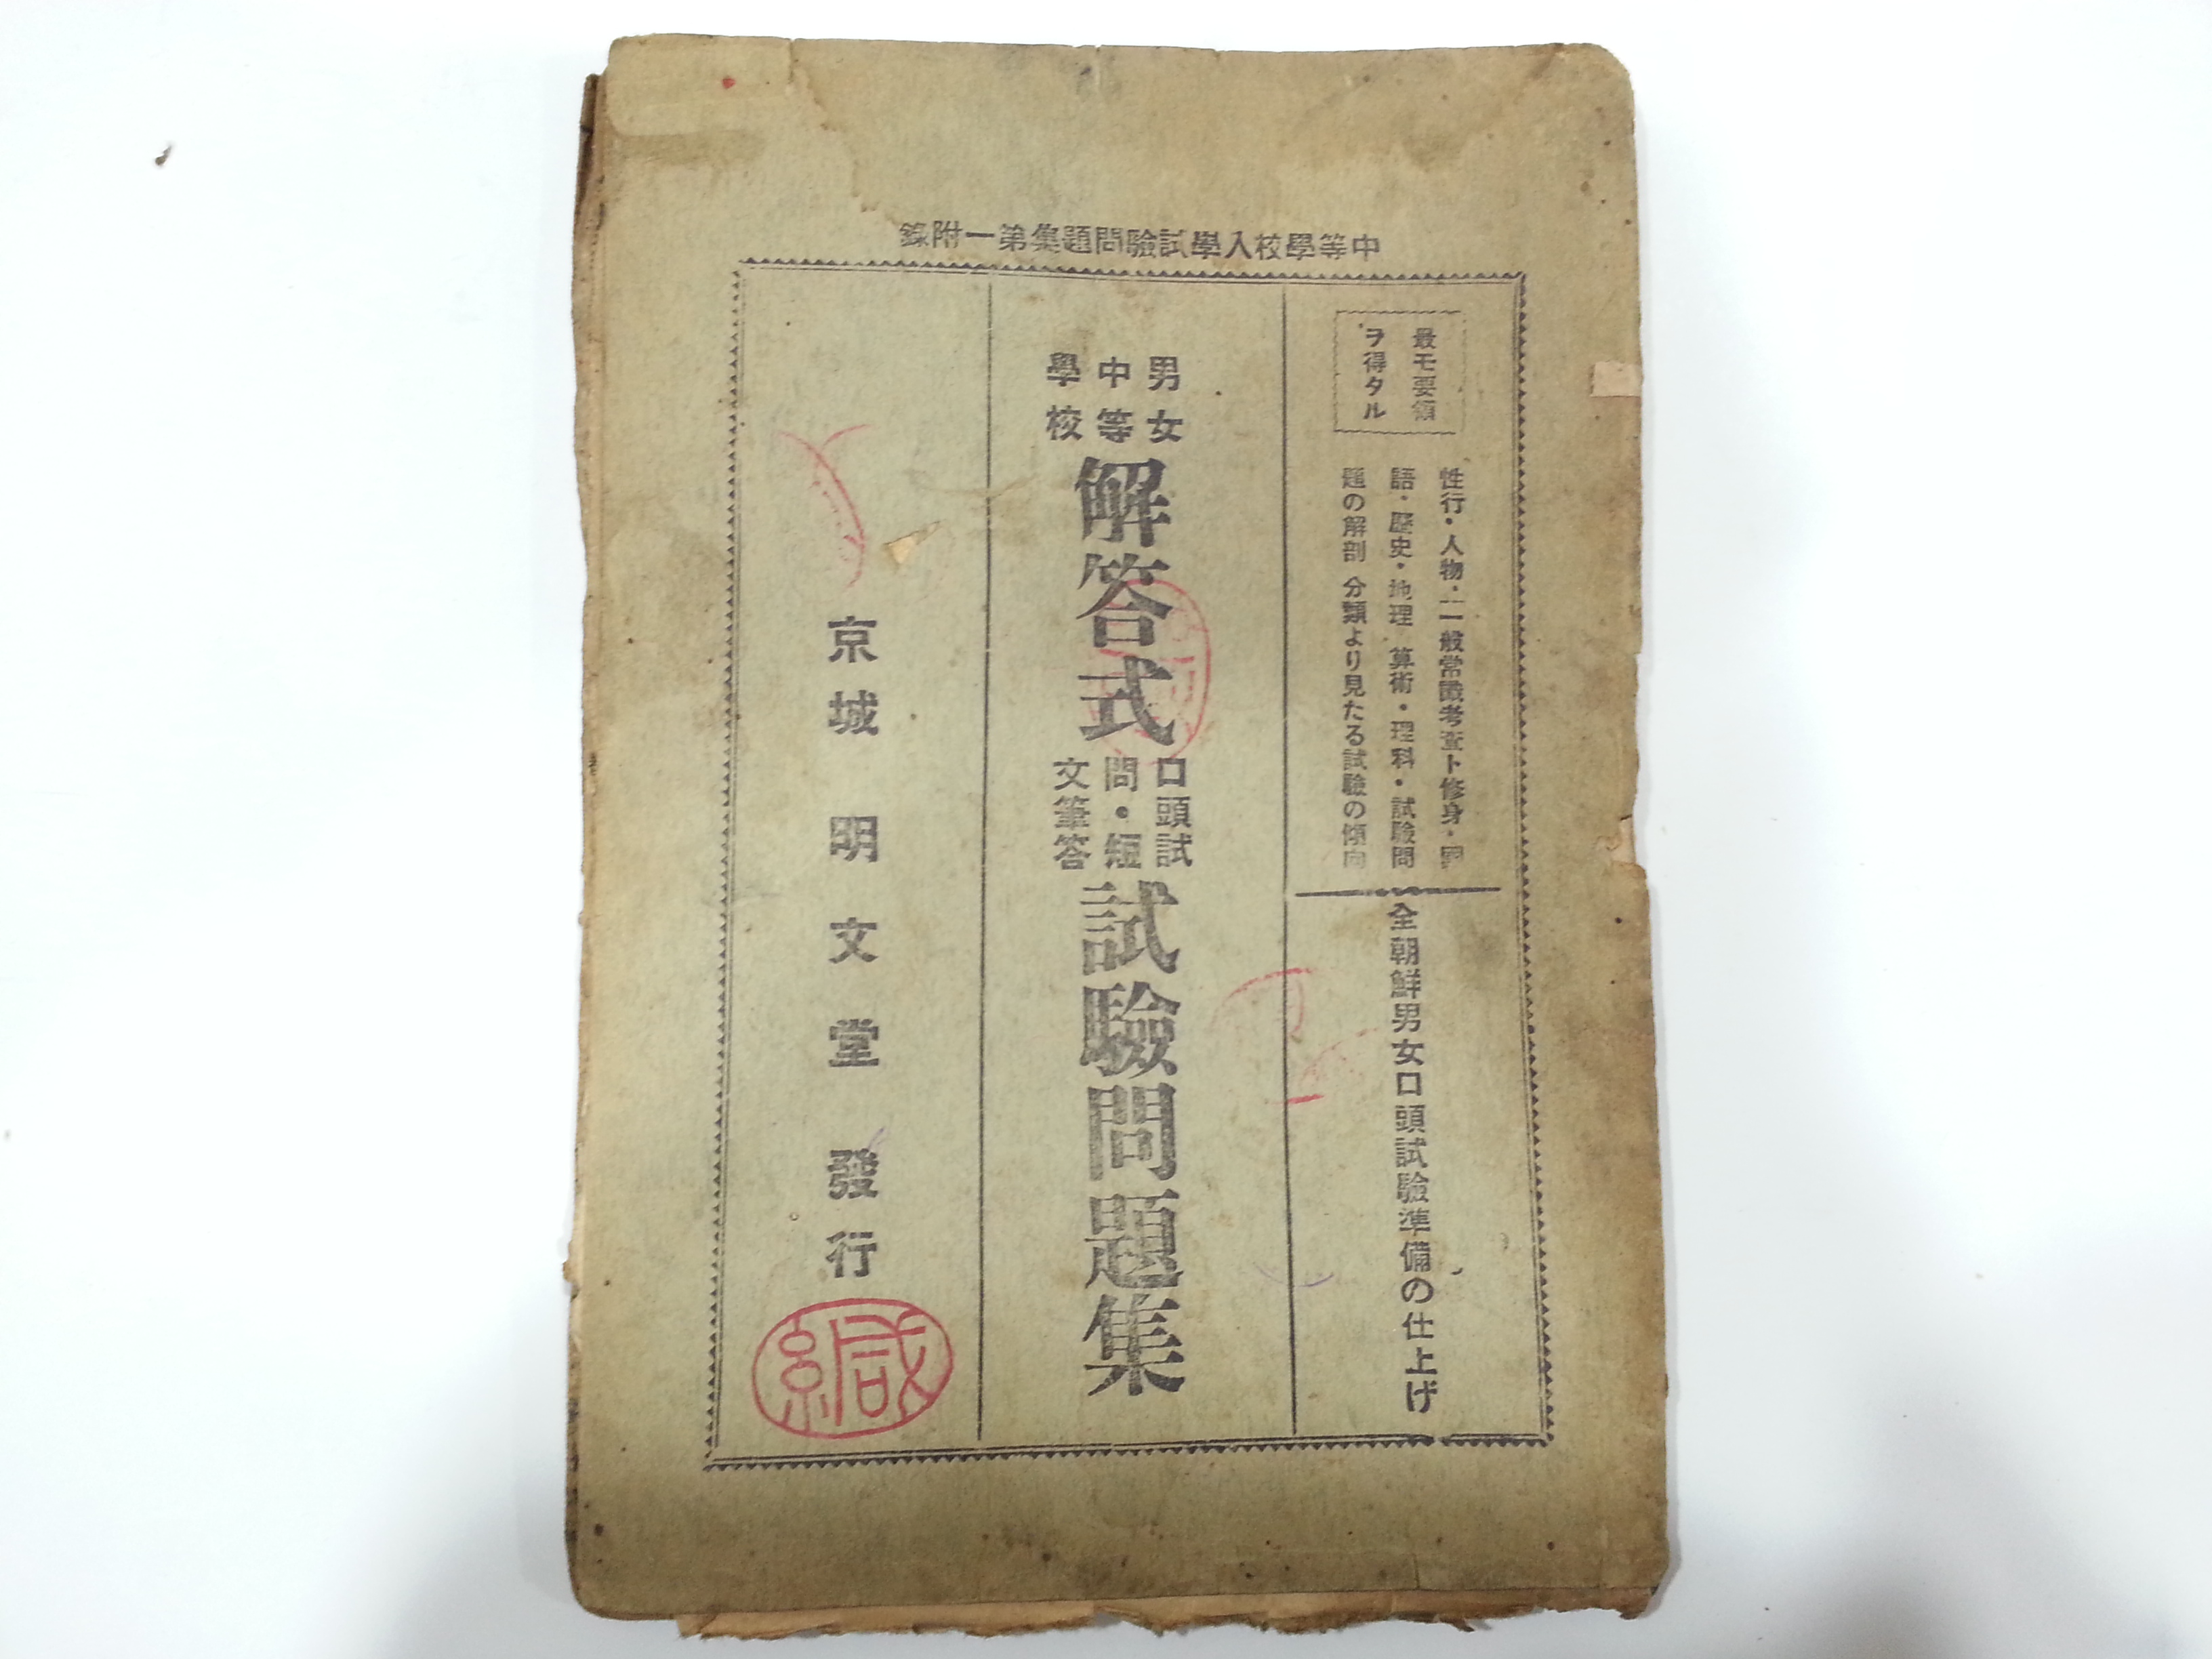 中等學校入學試驗問題集第一附錄
最モ要領
ヲ得タル
性行・人物・一般常識考査ト修身・國
語・歷史・地理 算術・理科・試驗問
題の解剖 分類より見たる試驗の傾向
全朝鮮男女口頭試驗準備の仕上げ
男女
中等
學校
解答式
口頭試
問・短
文筆答
試驗問題集
京城 明文堂 發行
緘